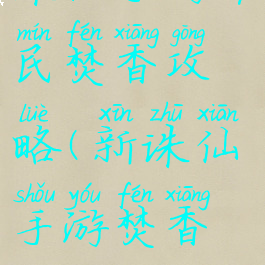 mín fén xiāng gōng
民焚香攻
lüè xīn zhū xiān
略(新诛仙
shǒu yóu fén xiāng
手游焚香